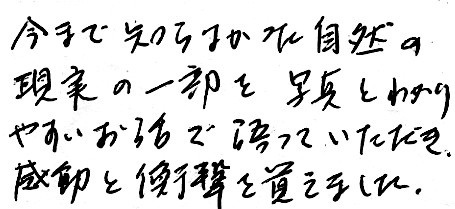 今まで知らなかった自然の
現実の一部を写真とわかり
やすいお話で語っていただき、
感動と衝撃を覚えました。